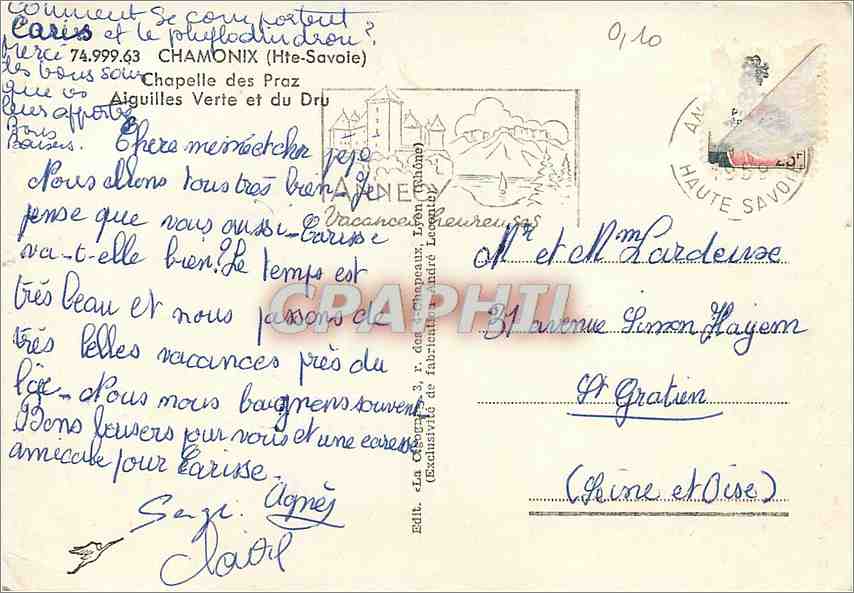 Comment se comportent
Cariss et le phylodindron?
Merci
des bons soins
que vs
leur apportez
Bons
Baisers.
0,10
74.999.63 CHAMONIX (Hte-Savoie)
Chapelle des Praz
Aiguilles Verte et du Dru
Chère mémé et cher pépé
Nous allons tous très bien. Je
pense que vous aussi. Carisse
va-t-elle bien? Le temps est
très beau et nous passons de
très belles vacances près du
lac. Nous nous baignons souvent
Bons baisers pour vous et une caresse
amicale pour Carisse.
Serge. Agnès
ANNECY
Vacances heureuses
HAUTE SAVOIE
25F
Edit. «La Cigogne», 3, r. des 4-Chapeaux, Lyon (Rhône)
(Exclusivité de fabrication André Leconte)
CPAPHIL
Mr et Mme Lardeuse
31 avenue Simon Hayem
St Gratien
(Seine et Oise)